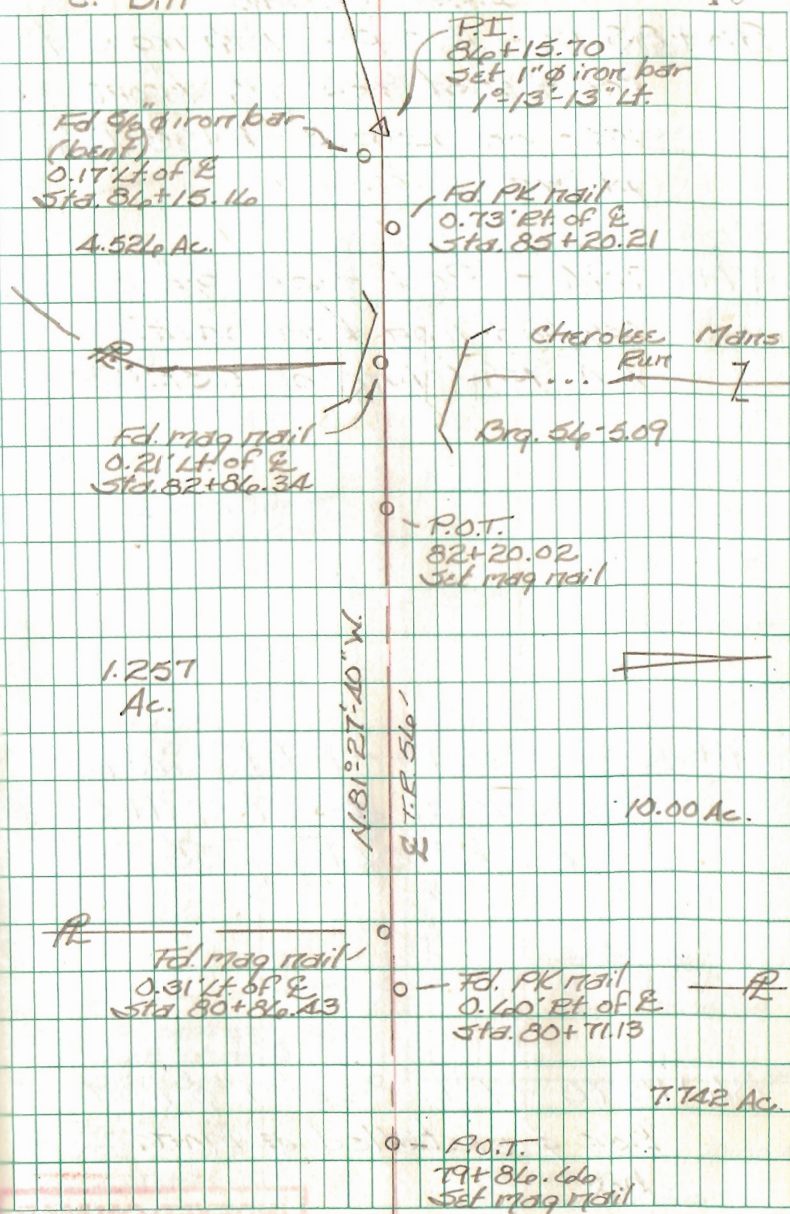 P.I.
86+15.70
Set 1"φ iron bar
1°-13'-13" Lt.
Fd 5/8"φ iron bar
(bent)
0.17' Lt of ℄
Sta. 86+15.16
4.526 Ac.
Fd. PK nail
0.73' Rt. of ℄
Sta. 85+20.21
Cherokee Mans
Run
PL
Brg. 56-5.09
Fd. mag nail
0.21' Lt of ℄
Sta. 82+86.34
P.O.T.
82+20.02
Set mag nail
1.257
Ac.
N.81°-27'-40" W.
℄ T.R. 56
10.00 Ac.
PL
Fd. mag nail
0.31' Lt. of ℄
Sta 80+86.43
Fd. PK nail
0.60' Rt. of ℄
Sta. 80+71.13
PL
7.742 Ac.
P.O.T.
79+86.66
Set mag nail